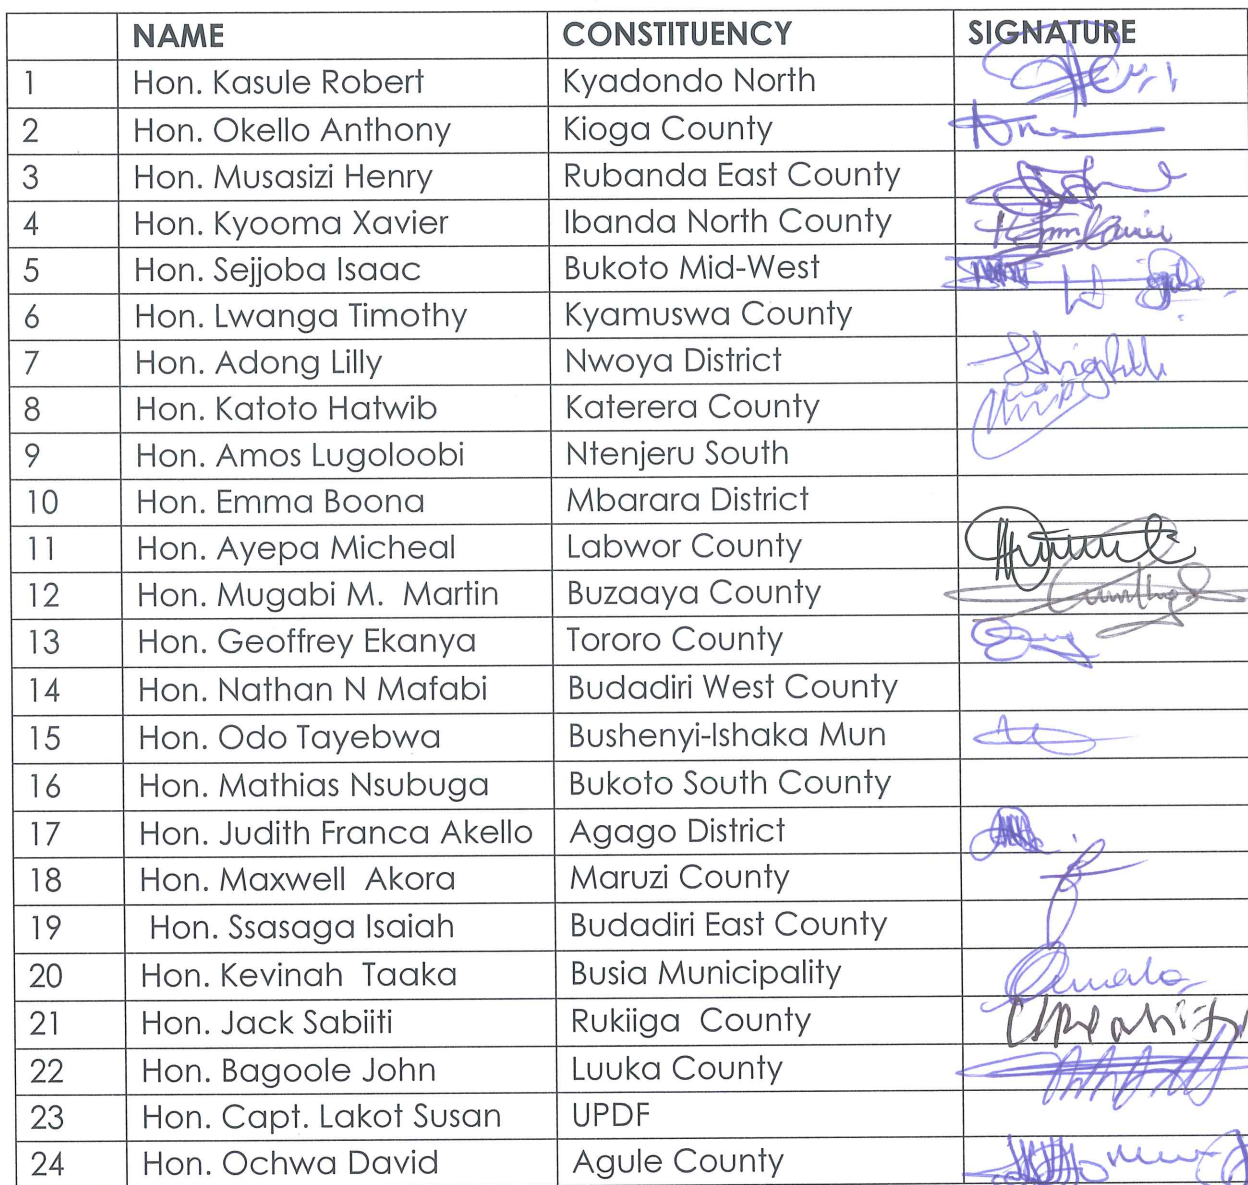 NAME CONSTITUENCY SIGNATURE
1 Hon. Kasule Robert Kyadondo North
2 Hon. Okello Anthony Kioga County
3 Hon. Musasizi Henry Rubanda East County
4 Hon. Kyooma Xavier Ibanda North County
5 Hon. Sejjoba Isaac Bukoto Mid-West
6 Hon. Lwanga Timothy Kyamuswa County
7 Hon. Adong Lilly Nwoya District
8 Hon. Katoto Hatwib Katerera County
9 Hon. Amos Lugoloobi Ntenjeru South
10 Hon. Emma Boona Mbarara District
11 Hon. Ayepa Micheal Labwor County
12 Hon. Mugabi M. Martin Buzaaya County
13 Hon. Geoffrey Ekanya Tororo County
14 Hon. Nathan N Mafabi Budadiri West County
15 Hon. Odo Tayebwa Bushenyi-Ishaka Mun
16 Hon. Mathias Nsubuga Bukoto South County
17 Hon. Judith Franca Akello Agago District
18 Hon. Maxwell Akora Maruzi County
19 Hon. Ssasaga Isaiah Budadiri East County
20 Hon. Kevinah Taaka Busia Municipality
21 Hon. Jack Sabiiti Rukiiga County
22 Hon. Bagoole John Luuka County
23 Hon. Capt. Lakot Susan UPDF
24 Hon. Ochwa David Agule County